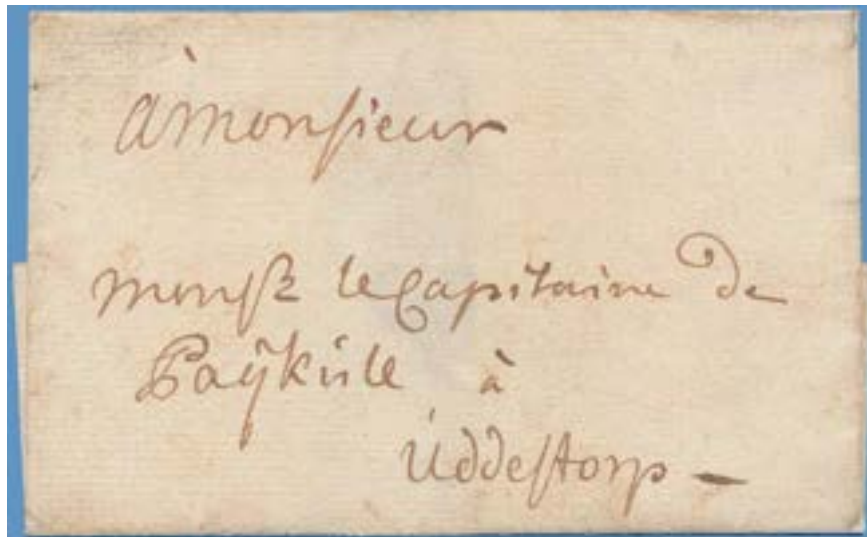 à Monsieur
Monsr le Capitaine de
Paÿkúle à
Úddestorp –